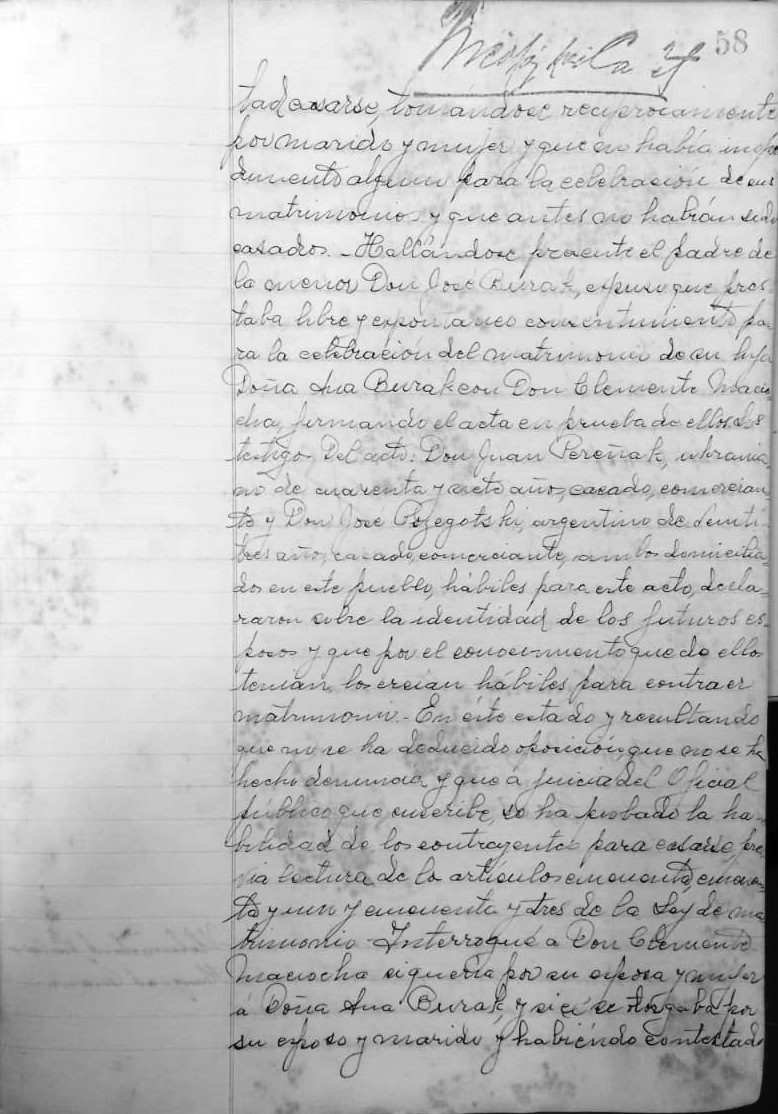 58
tad casarse, tomándose reciprocamente
por marido y mujer y que no había impe
dimento alguno para la celebración de sus
matrimonios y que antes no habián sido
casados. - Hallándose presente el padre de
la menor Don José Burak, expuso que pres
taba libre y espontaneo consentimiento pa
ra la celebración del matrimonio de su hija
Doña Ana Burak con Don Clemente Macio
cha, firmando el acta en prueba de ello. Los
testigos del acto: Don Juan Pereñak, ukrania
no de cuarenta y siete años, casado, comercian
te y Don José Pozegotski, argentino de veinti
tres años, casado, comerciante, ambos domicilia
dos en este pueblo, hábiles para este acto, decla
raron sobre la identidad de los futuros es
posos y que por el conocimiento que de ellos
tenian, los creian hábiles para contraer
matrimonio. - En éste estado y resultando
que no se ha deducido oposición, que no se ha
hecho denuncia y que á juicio del Oficial
público que suscribe, se ha probado la ha
bilidad de los contrayentes para casarse, pre
via lectura de los artículos cincuenta, cincuen
ta y un y cincuenta y tres de la Ley de ma
trimonio - Interrogué a Don Clemente
Maciocha si quería por su esposa y mujer
á Doña Ana Burak, y si ésta se otorgaba por
su esposo y marido y habiéndo contestado